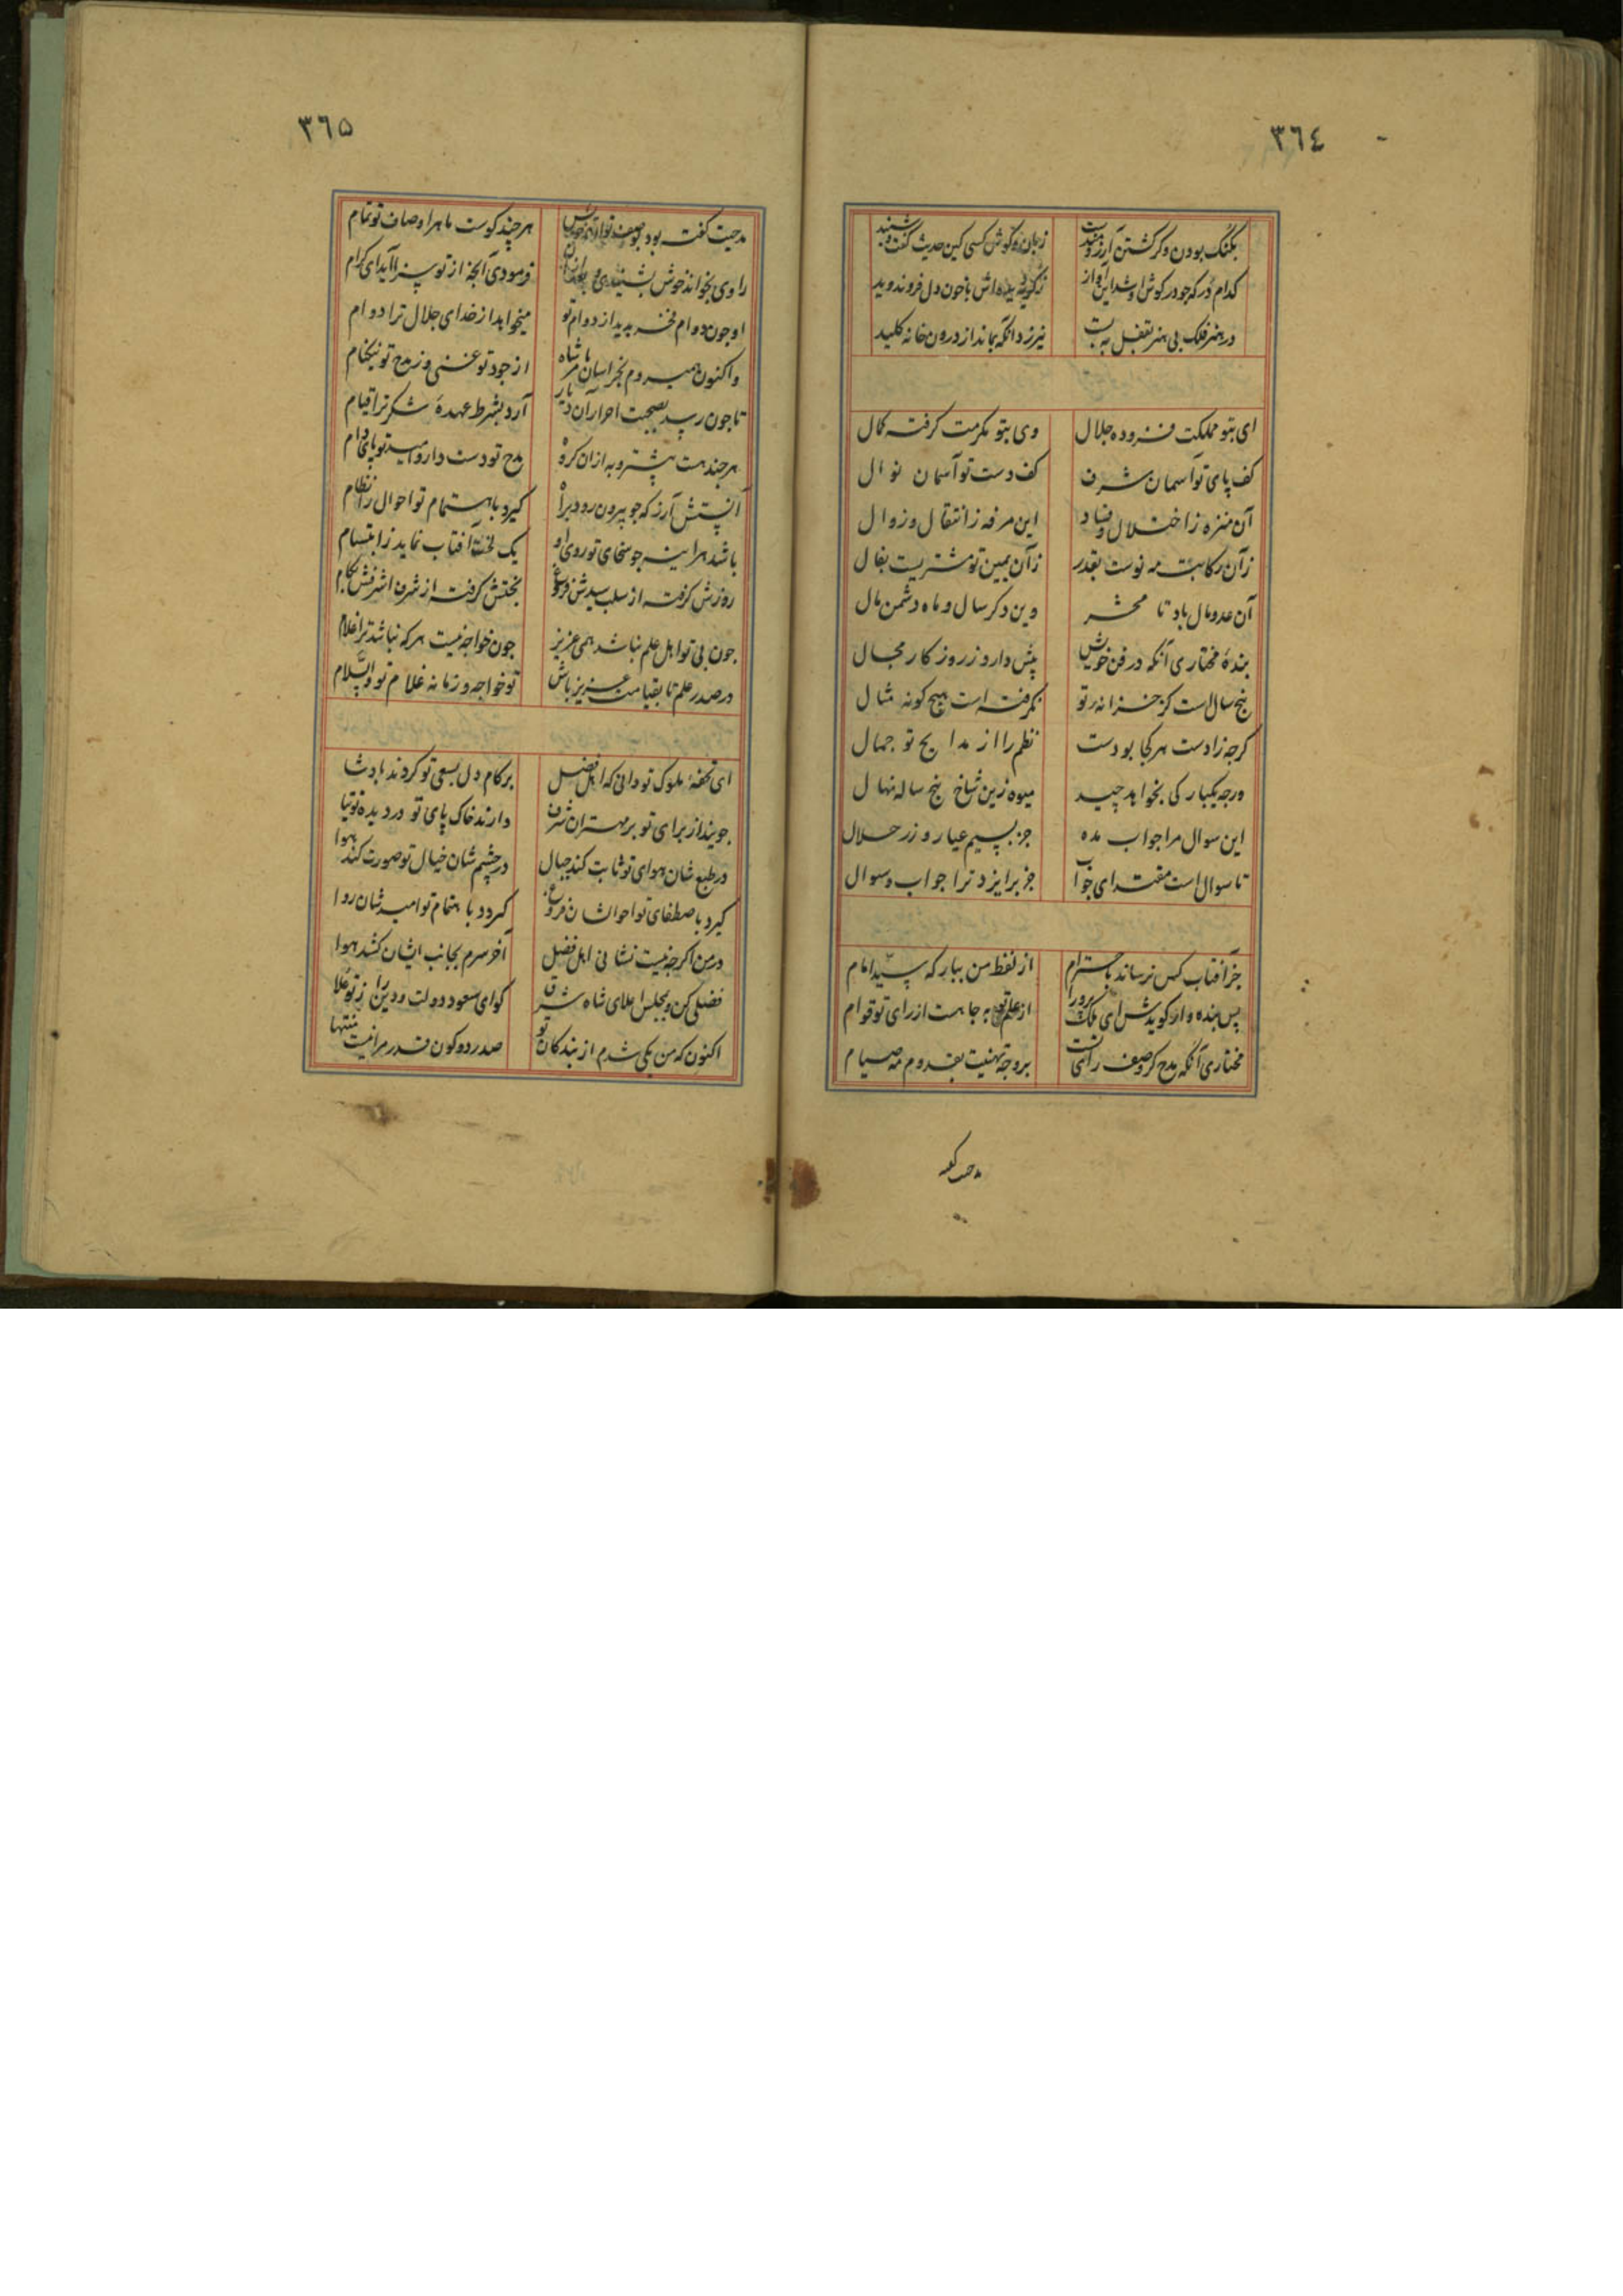 ٣٦٤
بگنگ بودن و کر گشتن آرزومندست زبان و گوش کسی کین حدیث گفت و شنید
کدام در که جو در گوش او شد این آواز ز دیده‌اش با خون دل فرو ندوید
در هنر فلک بی هنر بقفل ببست نیرزد آنکه بماند از درون خانه کلید
ای بتو مملکت فزوده جلال وی بتو مکرمت گرفته کمال
کف پای تو آسمان شرف کف دست تو آسمان نوال
آن منزه ز اختلال و فساد این مرفه ز انتقال و زوال
زآن رکابت مه نوست بقدر زآن یمین تو مشتریست بفال
آن عدو مال باد تا محشر وین دگر سال و ماه دشمن مال
بندهٔ مختاری آنکه در فن خویش پیش دارو ز روزکار مجال
پنج سال است کز خزانه تو نگرفته است هیچ کونه مثال
کرجه زادست هر کجا بودست نظم را از مدایح تو جمال
ورجه یکبارکی بخواهد چید میوه زین شاخ پنج ساله نهال
این سوال مرا جواب مده جز بسیم عیار و زر حلال
تا سوال است مقتدای جواب جز بر ایزد ترا جواب و سوال
جز آفتاب کس نرساند باحترام از لفظ من ببارکه سید امام
پس بنده وار گویدش ای ملک پرور از علم تو به جاهست از رای تو قوام
مختاری آنکه مدح کر وصف رای تست بر وجه تهنیت بقدوم مه صیام
مدحت گفته
٣٦٥
مدحیت گفته بود بوصف تو هر چند کوست ماهر اوصاف تو تمام
راوی بخواند خوش بشنیدی و فرمودی آنجه از تو سزا آید ای کرام
او جون دوام فخر بدید از دوام تو میخواهد از خدای جلال ترا دوام
واکنون همیرود بخراسان مر شاه را از جود تو غنی و ز مدح تو نیکنام
تا جون رسد بصحبت احرار آن دیار آرد بشرط عهدهٔ شکر ترا قیام
هر جند هست بیشتر و به از ان کروه مدح تو دست دارو امید تو پای دام
آن پستش آرز که جو بیرون رود براه گیرد باهتمام تو احوال را نظام
باشد هر اینه جو سخای تو روی او یک لخت آفتاب نماید ز ابتسام
روزش گرفته از سلب سیدش فروغ بختش گرفته از شرف اشرفش کام
جون بی تو اهل علم نباشد همی عزیز جون خواجه نیست هر که نباشد ترا غلام
در صدر علم تا بقیامت عزیز باش تو خواجه و زمانه غلام تو والسلام
ای تحفهٔ ملوک تو دانی که اهل فضل بر کام دل بسعی تو کردند پادشا
جویند از برای تو بر مهتران شرف دارند خاک پای تو در دیده توتیا
در طبع شان هوای تو ثابت کند جبال در چشم شان خیال تو صورت کند هوا
گیرد باصطفای تو احوالشان فروغ گردد باهتمام تو امیدشان روا
در من اگرجه نیست نشانی اهل فضل آخر سرم بجانب ایشان کشد هوا
فضلی کن و بمجلس اعلای شاه شرق کو ای مسعود دولت و دین را ز تو علا
اکنون که من یکی شدم از بندگان تو صدر دو کون قدر مرا نیست منتها